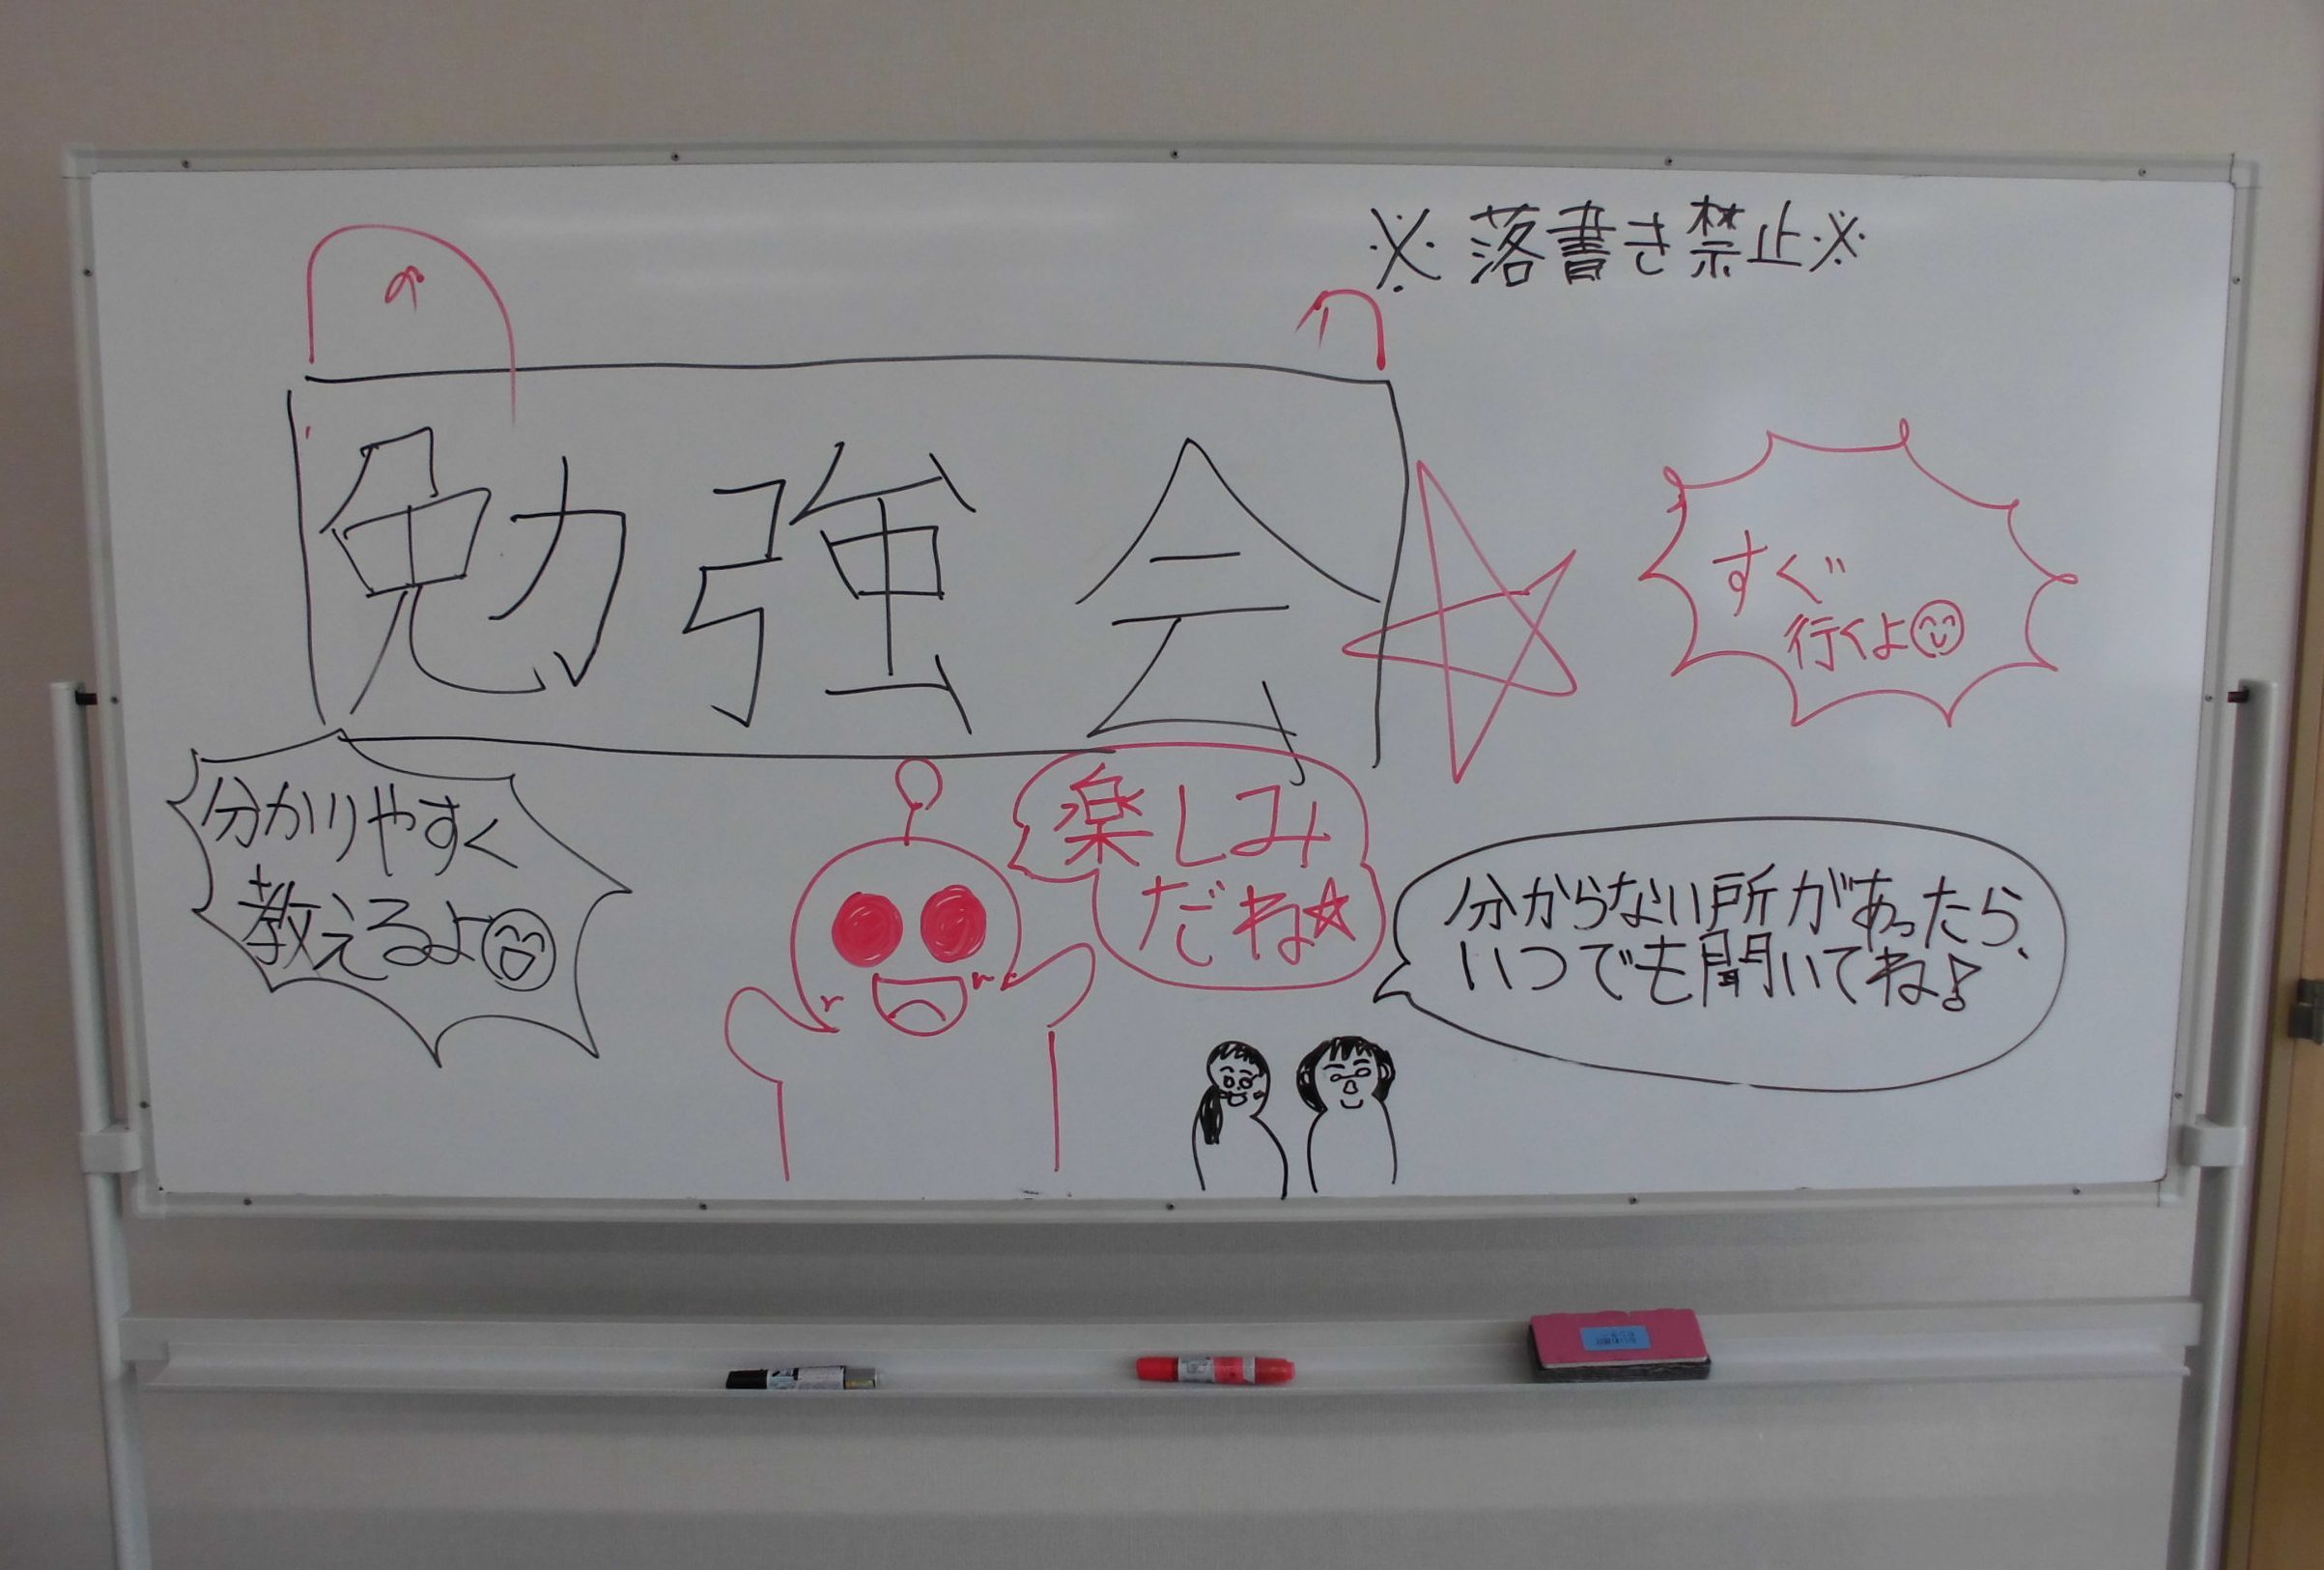 ※落書き禁止※
勉強会
すぐ
行くよ
分かりやすく
教えるよ
楽しみ
だね☆
分からない所があったら、
いつでも聞いてね♪